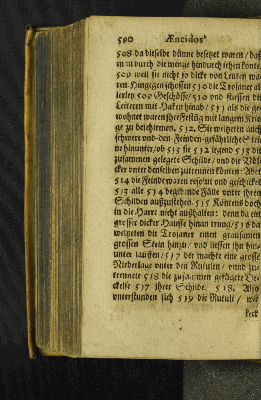 590 Æneidos
508 da dieselbe dünne besetzet waren / daß
man durch die menge hindurch sehen konte,
509 weil sie nicht so dicke von Leuten wa-
ren. Hingegen schossen 510 die Trojaner al-
lerley 509 Geschösse / 510 und stiessen die
Leiteren mit Haken hinab / 511 als die ge-
wohnet waren ihre Festung mit langem Krie-
ge zu beschirmen. 512. Sie weltzeten auch
schwere und den Feinden gefährliche Stei-
ne hinunter / ob 513 sie 512 irgend 513 die
zusammen gelegete Schilde / und die Völ-
cker unter denselben zutrennen könten: Aber
514 die Feinde waren resolut und geschicket
517 alle 514 begebende Fälle unter ihren
Schilden auszustehen. 515 Kontens doch
in die Harre nicht aushalten: denn da ein
grosser dicker Hauffe hinan trung / 516 da
weltzeten die Trojaner einen grausamen
grossen Stein hinzu / und liessen ihn hin-
unter lauffen / 517 der machte eine grosse
Niederlage unter den Rutulen / unnd zu-
trennete 518 die zusammen gefügete De-
ckelse 517 ihrer Schilde. 518. Also
unterstunden sich 519 die Rutuli / wie
keck